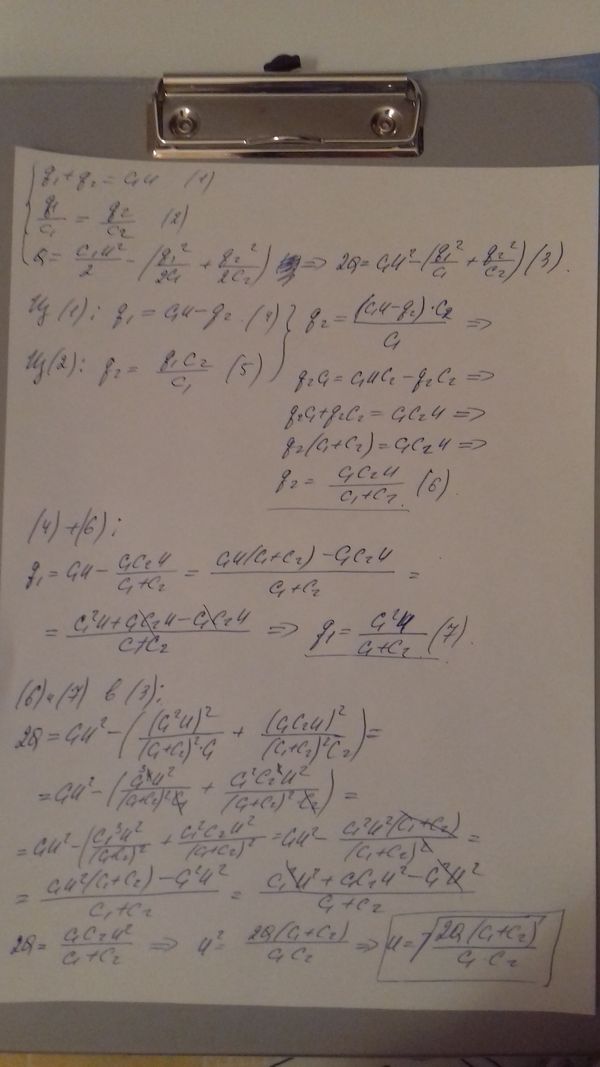 q₁+q₂ = C₁U (1)
q₁/C₁ = q₂/C₂ (2)
Q = C₁U²/2 − (q₁²/2C₁ + q₂²/2C₂) => 2Q = C₁U² − (q₁²/C₁ + q₂²/C₂) (3).
Из (1): q₁ = C₁U − q₂. (4)
Из (2): q₂ = q₁C₂/C₁ (5)
q₂ = (C₁U − q₂)·C₂/C₁ =>
q₂C₁ = C₁UC₂ − q₂C₂ =>
q₂C₁ + q₂C₂ = C₁C₂U =>
q₂(C₁+C₂) = C₁C₂U =>
q₂ = C₁C₂U/(C₁+C₂) (6).
(4)+(6):
q₁ = C₁U − C₁C₂U/(C₁+C₂) = (C₁U(C₁+C₂) − C₁C₂U)/(C₁+C₂) =
= (C₁²U + C₁C₂U − C₁C₂U)/(C₁+C₂) => q₁ = C₁²U/(C₁+C₂) (7).
(6) и (7) в (3):
2Q = C₁U² − ((C₁²U)²/((C₁+C₂)²·C₁) + (C₁C₂U)²/((C₁+C₂)²C₂)) =
= C₁U² − (C₁³U²/((C₁+C₂)²C₁) + C₁²C₂²U²/((C₁+C₂)²·C₂)) =
= C₁U² − (C₁³U²/(C₁+C₂)² + C₁²C₂U²/(C₁+C₂)²) = C₁U² − C₁²U²(C₁+C₂)/(C₁+C₂)² =
= (C₁U²(C₁+C₂) − C₁²U²)/(C₁+C₂) = (C₁²U² + C₁C₂U² − C₁²U²)/(C₁+C₂)
2Q = C₁C₂U²/(C₁+C₂) => U² = 2Q(C₁+C₂)/(C₁C₂) => U = √(2Q(C₁+C₂)/(C₁·C₂))